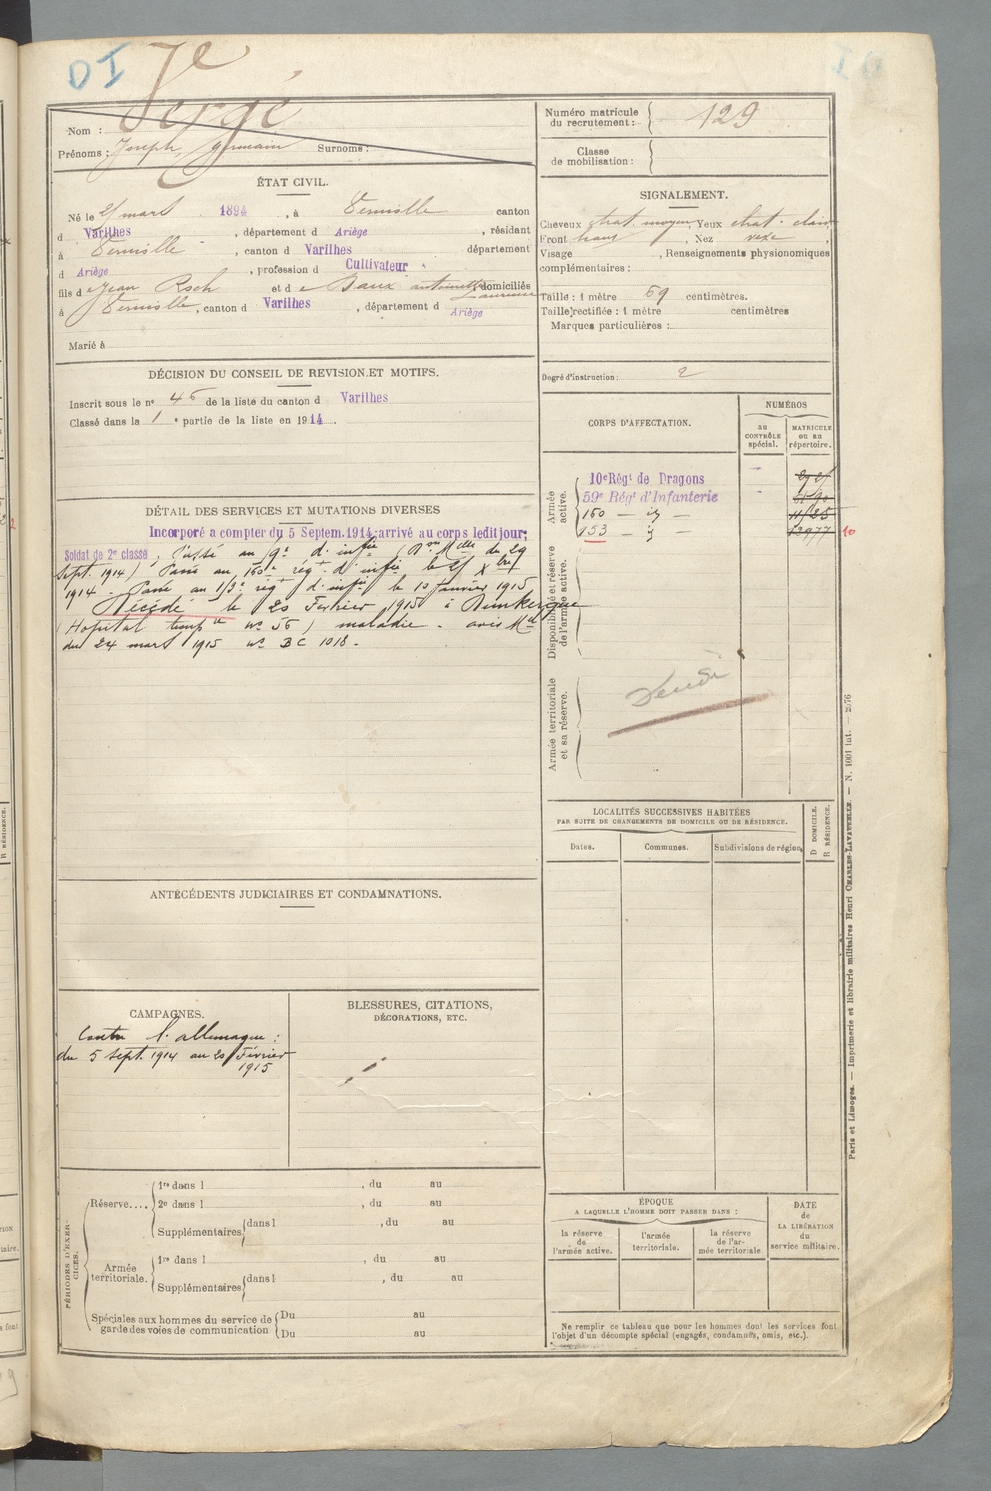 DI
Vergé
Nom :
Prénoms : Joseph, Germain Surnoms :
Numéro matricule
du recrutement : 129
Classe
de mobilisation :
ÉTAT CIVIL.
Né le mars 1894, à canton
d Varilhes, département d Ariège, résidant
à , canton d Varilhes département
d Ariège, profession d Cultivateur
fils d e Jean et d e antoinette domiciliés
à , canton d Varilhes, département d Ariège
Marié à
SIGNALEMENT.
Cheveux chat. moyen, Yeux chat. clair
Front , Nez ,
Visage , Renseignements physionomiques
complémentaires :
Taille : 1 mètre 69 centimètres.
Taille rectifiée : 1 mètre centimètres
Marques particulières :
Degré d'instruction : 2
DÉCISION DU CONSEIL DE REVISION ET MOTIFS.
Inscrit sous le no 46 de la liste du canton d Varilhes
Classé dans la 1 e partie de la liste en 1914.
DÉTAIL DES SERVICES ET MUTATIONS DIVERSES
Incorporé a compter du 5 Septem. 1914; arrivé au corps ledit jour;
Soldat de 2e classe, Passé au 9e d'inf.ie, Don Mlle du 29
Sept. 1914) Passé au 160e régt d'inf.ie le Xbre
1914 - Passé au 153e régt d'inf.ie le 10 janvier 1915
Décédé le 20 Février 1915 à Dunkerque
(Hopital temp.re no 56) maladie - avis Mel
du 24 mars 1915 no BC 1018 -
CORPS D'AFFECTATION.
NUMÉROS
au
CONTRÔLE
spécial.
MATRICULE
ou au
répertoire.
Armée
active.
10e Régt de Dragons
59e Régt d'Infanterie
160 - -
153 - - 13977 10
Disponibilité et réserve
de l'armée active.
Armée territoriale
et sa réserve.
LOCALITÉS SUCCESSIVES HABITÉES
PAR SUITE DE CHANGEMENTS DE DOMICILE OU DE RÉSIDENCE.
Dates.
Communes.
Subdivisions de région.
D DOMICILE.
R RÉSIDENCE.
ANTÉCÉDENTS JUDICIAIRES ET CONDAMNATIONS.
CAMPAGNES.
Contre l'allemagne :
du 5 Sept. 1914 au 20 Février
1915
BLESSURES, CITATIONS,
DÉCORATIONS, ETC.
PÉRIODES D'EXER-
CICES.
Réserve....
1re dans l , du au
2e dans l , du au
Supplémentaires dans l , du au
Armée
territoriale.
1re dans l , du au
Supplémentaires dans l , du au
Spéciales aux hommes du service de
garde des voies de communication
Du au
Du au
ÉPOQUE
A LAQUELLE L'HOMME DOIT PASSER DANS :
la réserve
de
l'armée active.
l'armée
territoriale.
la réserve
de l'ar-
mée territoriale
DATE
de
LA LIBÉRATION
du
service militaire.
Ne remplir ce tableau que pour les hommes dont les services font
l'objet d'un décompte spécial (engagés, condamnés, omis, etc.).
Paris et Limoges. — Imprimerie et librairie militaires Henri CHARLES-LAVAUZELLE. — N. 1001 int. — 2/76